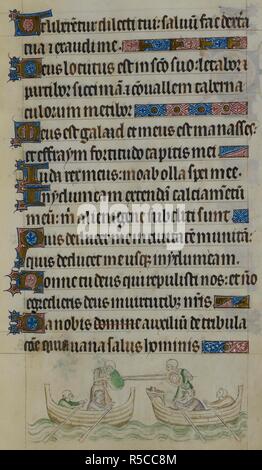 Ut liberentur dilecti tui: saluum fac dextera
tua et exaudi me.
Deus locutus est in sco suo: letabor et
partibor siccimam et conuallem taberna
culorum metibor.
Meus est galaad et meus est manasses:
et effraym fortitudo capitis mei
Iuda rex meus: moab olla spei mee.
In ydumeam extendam calciamentum
meum: m alienigene subditi sunt
Quis deducet me in ciuitatem munitam:
quis deducet me usque in ydumeam.
Nonne tu deus qui repulisti nos: et non
egredieris deus in uirtutibus nris
Da nobis domine auxilium de tribula
cone quia uana salus hominis
alamy
Image ID: R5CC8M
www.alamy.com